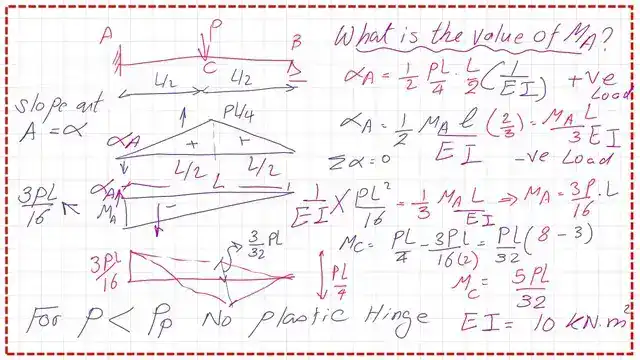 What is the value of MA?
P
A
B
C
L/2 L/2
αA = 1/2 PL/4 . L/2 (1/EI) +ve Load
slope at
A = α
PL/4
αA
+ +
αA = 1/2 MA l/EI (2/3) = MA L/3EI
Σα=0 -ve Load
L/2 L L/2
3PL/16
αA
MA
-
1/EI X PL²/16 = 1/3 MA L/EI ⇒ MA = 3P.L/16
3/32 PL
MC = PL/4 - 3PL/16(2) = PL/32 (8-3)
3PL/16
PL/4
MC = 5PL/32
For P < Pp No plastic Hinge
EI = 10 KN.m²